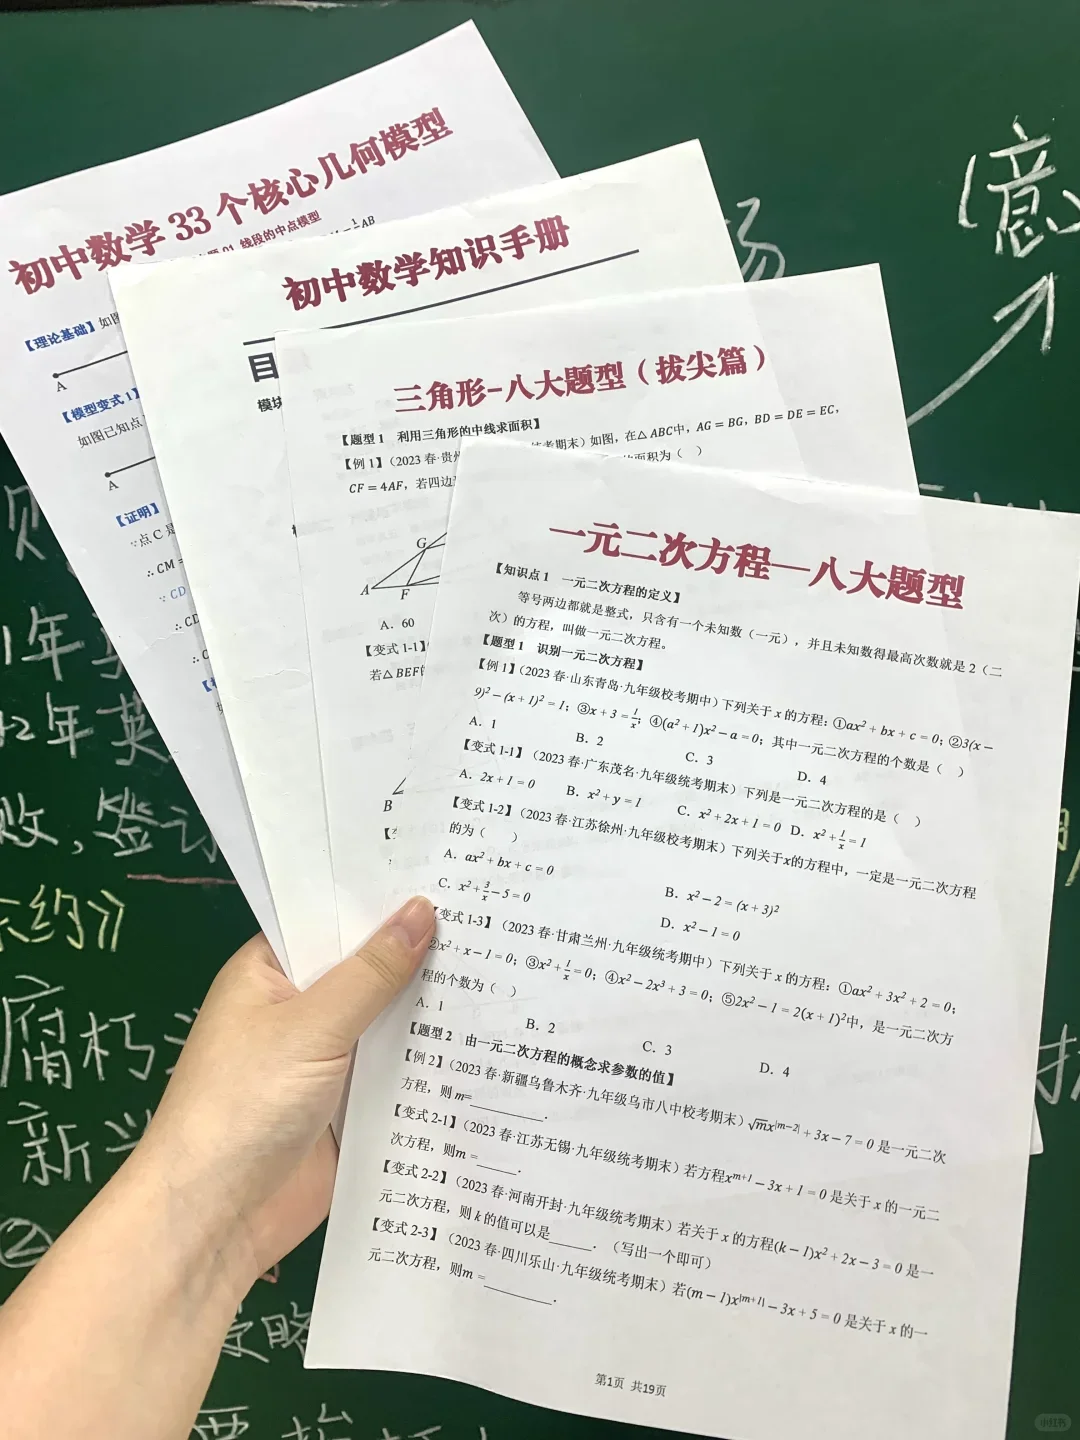 初中数学33个核心几何模型
线段的中点模型
【理论基础】如图
A
【模型变式1】
如图已知点
A
【证明】
∵点C是
∴CM=
∵CD
∴CD
初中数学知识手册
目
模块
三角形-八大题型（拔尖篇）
【题型1 利用三角形的中线求面积】
【例1】（2023春·贵州
考期末）如图，在△ABC中，AG=BG，BD=DE=EC，
CF=4AF，若四边
面积为（ ）
G
A
F
A．60
【变式1-1】
若△BEF
B
一元二次方程—八大题型
【知识点1 一元二次方程的定义】
等号两边都就是整式，只含有一个未知数（一元），并且未知数得最高次数就是2（二
次）的方程，叫做一元二次方程。
【题型1 识别一元二次方程】
【例1】（2023春·山东青岛·九年级校考期中）下列关于x的方程：①ax²+bx+c=0；②3(x−
9)²−(x+1)²=1；③x+3=1/x；④(a²+1)x²−a=0；其中一元二次方程的个数是（ ）
A．1 B．2 C．3 D．4
【变式1-1】（2023春·广东茂名·九年级统考期末）下列是一元二次方程的是（ ）
A．2x+1=0 B．x²+y=1 C．x²+2x+1=0 D．x²+1/x=1
【变式1-2】（2023春·江苏徐州·九年级校考期末）下列关于x的方程中，一定是一元二次方程
的为（ ）
A．ax²+bx+c=0 B．x²−2=(x+3)²
C．x²+3/x−5=0 D．x²−1=0
【变式1-3】（2023春·甘肃兰州·九年级统考期中）下列关于x的方程：①ax²+3x²+2=0；
②x²+x−1=0；③x²+1/x=0；④x²−2x³+3=0；⑤2x²−1=2(x+1)²中，是一元二次方
程的个数为（ ）
A．1 B．2 C．3 D．4
【题型2 由一元二次方程的概念求参数的值】
【例2】（2023春·新疆乌鲁木齐·九年级乌市八中校考期末）√mx|m−2|+3x−7=0是一元二次
方程，则m=________．
【变式2-1】（2023春·江苏无锡·九年级统考期末）若方程xᵐ⁺¹−3x+1=0是关于x的一元二
次方程，则m=_____．
【变式2-2】（2023春·河南开封·九年级统考期末）若关于x的方程(k−1)x²+2x−3=0是一
元二次方程，则k的值可以是_____．（写出一个即可）
【变式2-3】（2023春·四川乐山·九年级统考期末）若(m−1)x|m+1|−3x+5=0是关于x的一
元二次方程，则m=________．
第1页 共19页
(意)
场
1年英
42年英
败，签订
约》
腐朽
新
②
策略
小红书